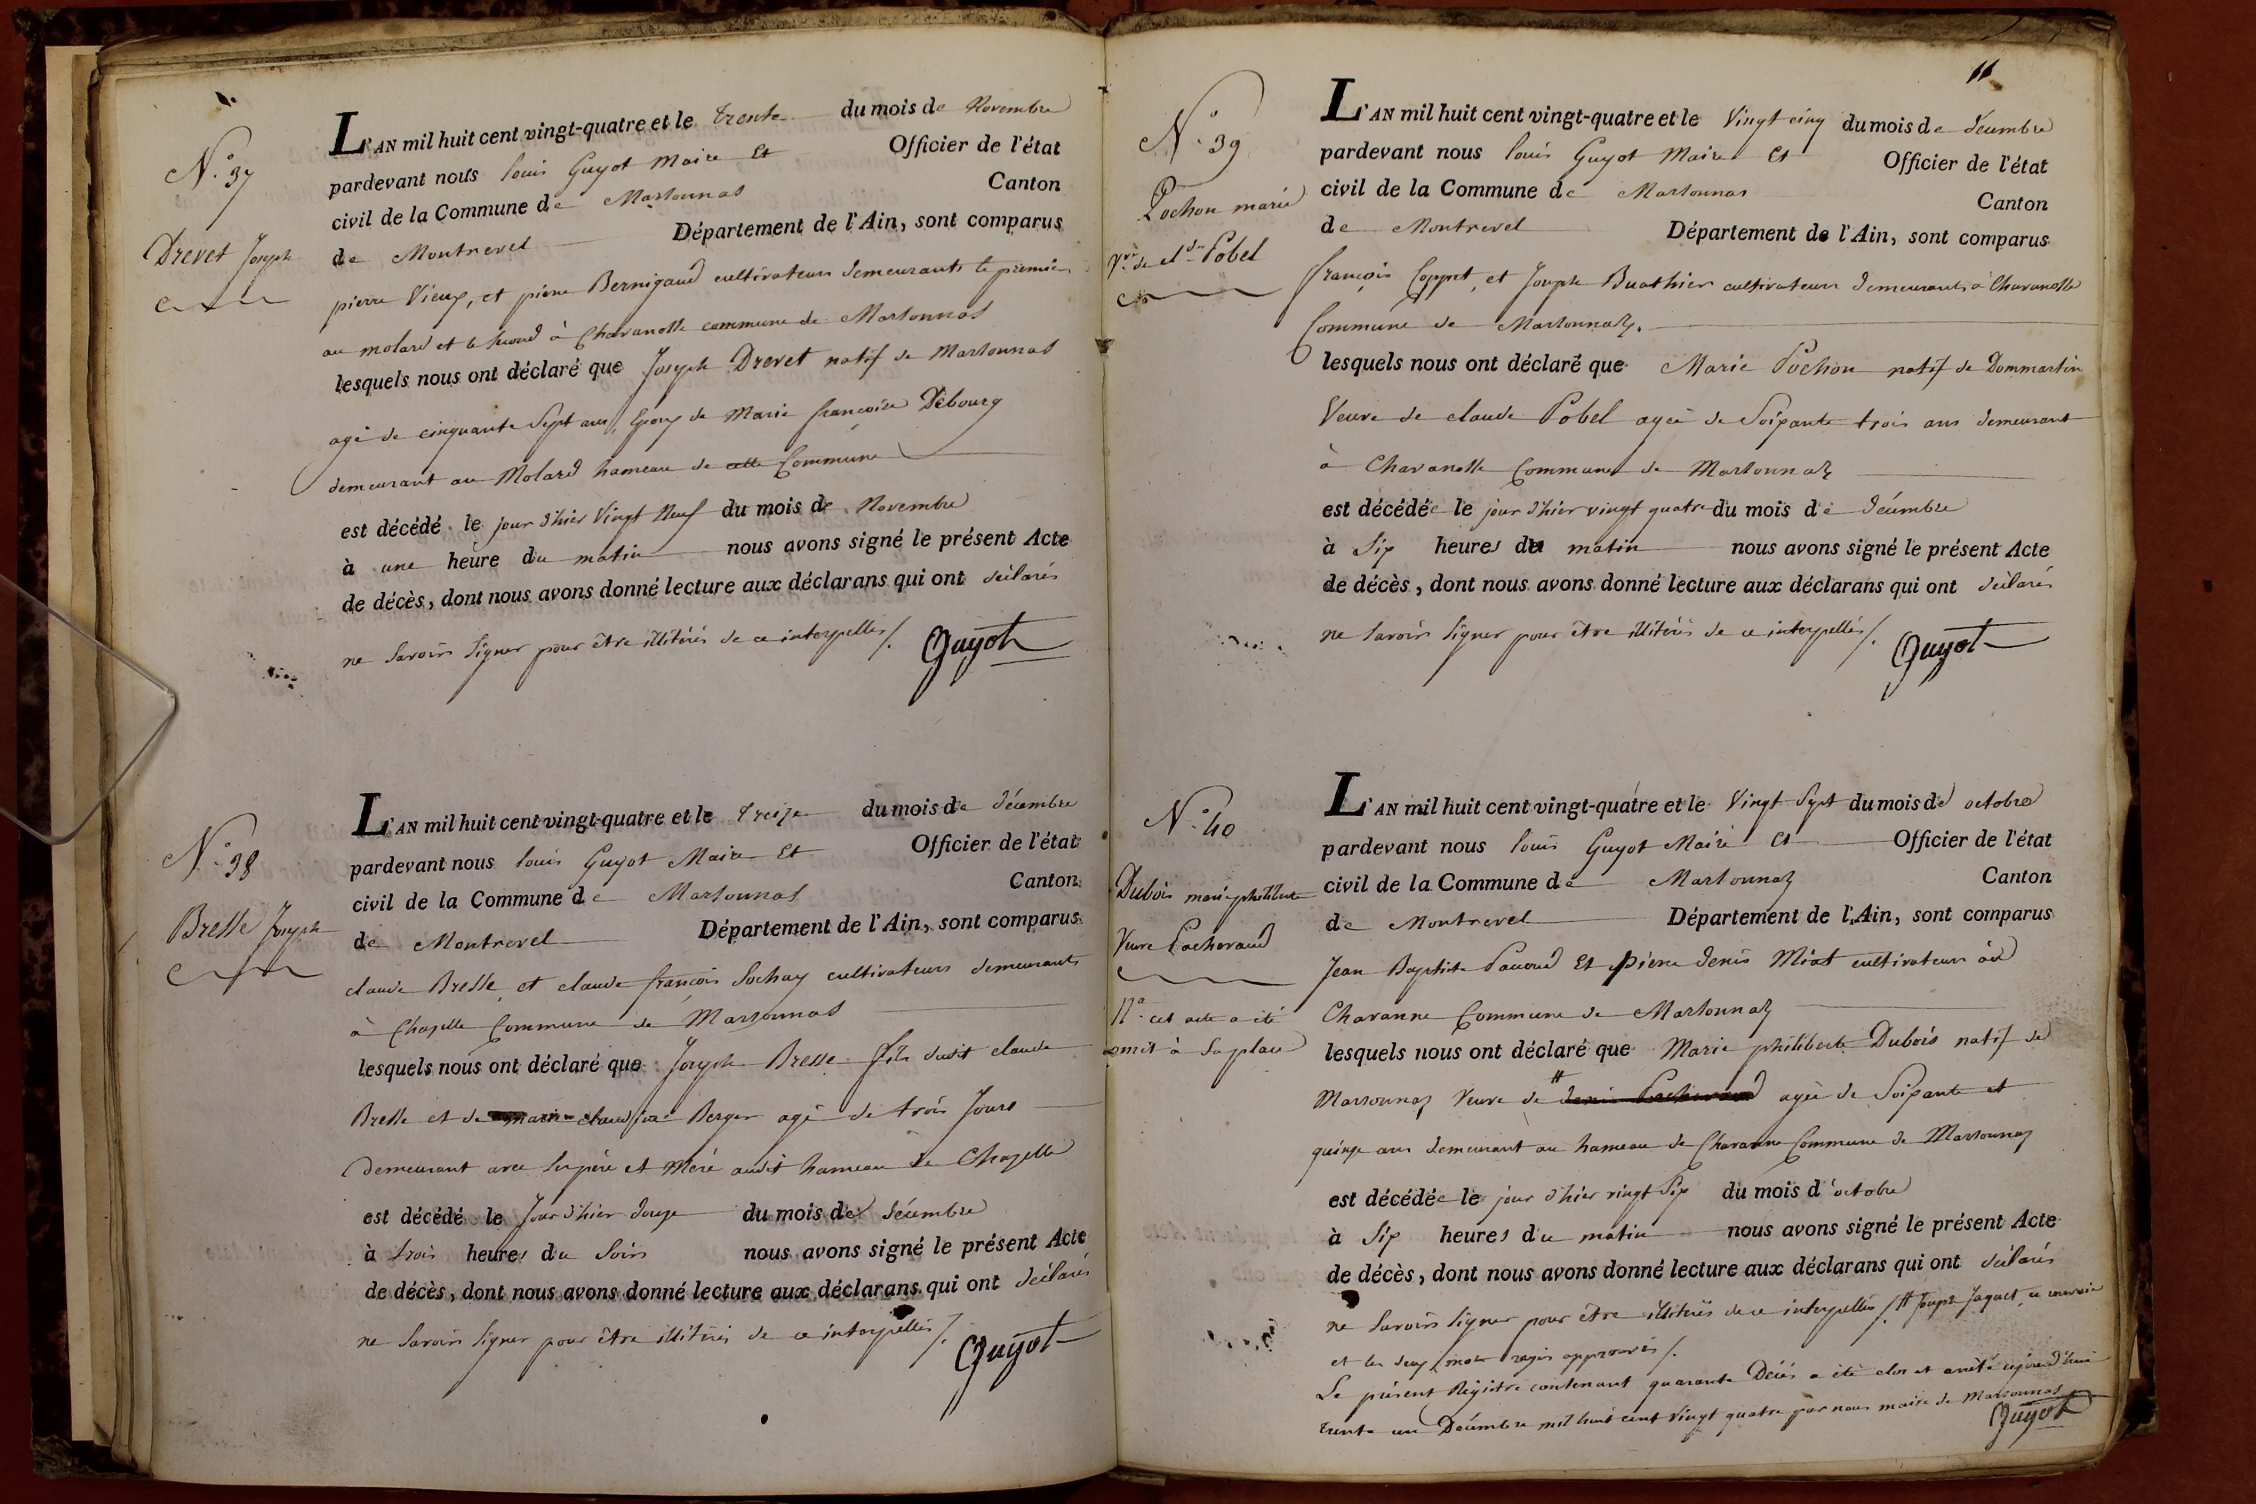 N.° 37
Drevet Joseph
L'AN mil huit cent vingt-quatre et le trente du mois de Novembre
pardevant nous louis Guyot Maire Et Officier de l'état
civil de la Commune de Marsonnas Canton
de Montrevel Département de l'Ain, sont comparus
pierre Vieux, et pierre Bernigaud cultivateurs demeurants le premier
au molard et le second à Chavanosse commune de Marsonnas
lesquels nous ont déclaré que Joseph Drevet natif de Marsonnas
agé de cinquante Sept ans, Epoux de Marie françoise Debourg
demeurant au Molard hameau de cette Commune
est décédé le jour d'hier Vingt Neuf du mois de Novembre
à une heure du matin nous avons signé le présent Acte
de décès, dont nous avons donné lecture aux déclarans qui ont déclarés
ne Savoir Signer pour être illitérés de ce interpellés /.
Guyot
N.° 38
Bresse Joseph
L'AN mil huit cent vingt-quatre et le treize du mois de décembre
pardevant nous louis Guyot Maire Et Officier de l'état
civil de la Commune de Marsonnas Canton
de Montrevel Département de l'Ain, sont comparus
claude Bresse, et claude françois Sochay cultivateurs demeurants
à Chapelle Commune de Marsonnas
lesquels nous ont déclaré que Joseph Bresse fils dudit claude
Bresse et de Berger agé de trois Jours
demeurant avec Ses père et Mère audit hameau de Chapelle
est décédé le Jour d'hier douze du mois de décembre
à trois heures du Soir nous avons signé le présent Acte
de décès, dont nous avons donné lecture aux déclarans qui ont déclarés
ne Savoir Signer pour être illitérés de ce interpellés /.
Guyot
11
N.° 39
Pochon marie
vve de cde Pobel
L'AN mil huit cent vingt-quatre et le Vingt cinq du mois de décembre
pardevant nous louis Guyot Maire Et Officier de l'état
civil de la Commune de Marsonnas Canton
de Montrevel Département de l'Ain, sont comparus
françois Coppet, et Joseph Buathier cultivateurs demeurants à Chavanosse
Commune de Marsonnaz.
lesquels nous ont déclaré que Marie Pochon natif de Dommartin
Veuve de claude Pobel agée de Soixante trois ans demeurant
à Chavanosse Commune de Marsonnaz
est décédée le jour d'hier vingt quatre du mois de décembre
à Six heures du matin nous avons signé le présent Acte
de décès, dont nous avons donné lecture aux déclarans qui ont déclarés
ne Savoir Signer pour être illitérés de ce interpellés /.
Guyot
N.° 40
Dubois marie philiberte
Veuve Pacheraud
Na cet acte a été
omit à Sa place
L'AN mil huit cent vingt-quatre et le Vingt Sept du mois de octobre
pardevant nous louis Guyot Maire Et Officier de l'état
civil de la Commune de Marsonnaz Canton
de Montrevel Département de l'Ain, sont comparus
Jean Baptiste Et pierre denis Miat cultivateurs à
Charanne Commune de Marsonnaz
lesquels nous ont déclaré que Marie philiberte Dubois natif de
Marsonnaz Veuve de # agée de Soixante et
quinze ans demeurant au hameau de Charanne Commune de Marsonnaz
est décédée le jour d'hier vingt Six du mois d'octobre
à Six heures du matin nous avons signé le présent Acte
de décès, dont nous avons donné lecture aux déclarans qui ont déclarés
ne Savoir Signer pour être illitérés de ce interpellés /. # Joseph Jaquet, ce renvoi
et les deux mots rayés approuvés /.
Le présent Régistre contenant quarante Décès a été clos et arrété ce jourd'hui
trente un Décembre mil huit cent Vingt quatre par nous maire de Marsonnas
Guyot